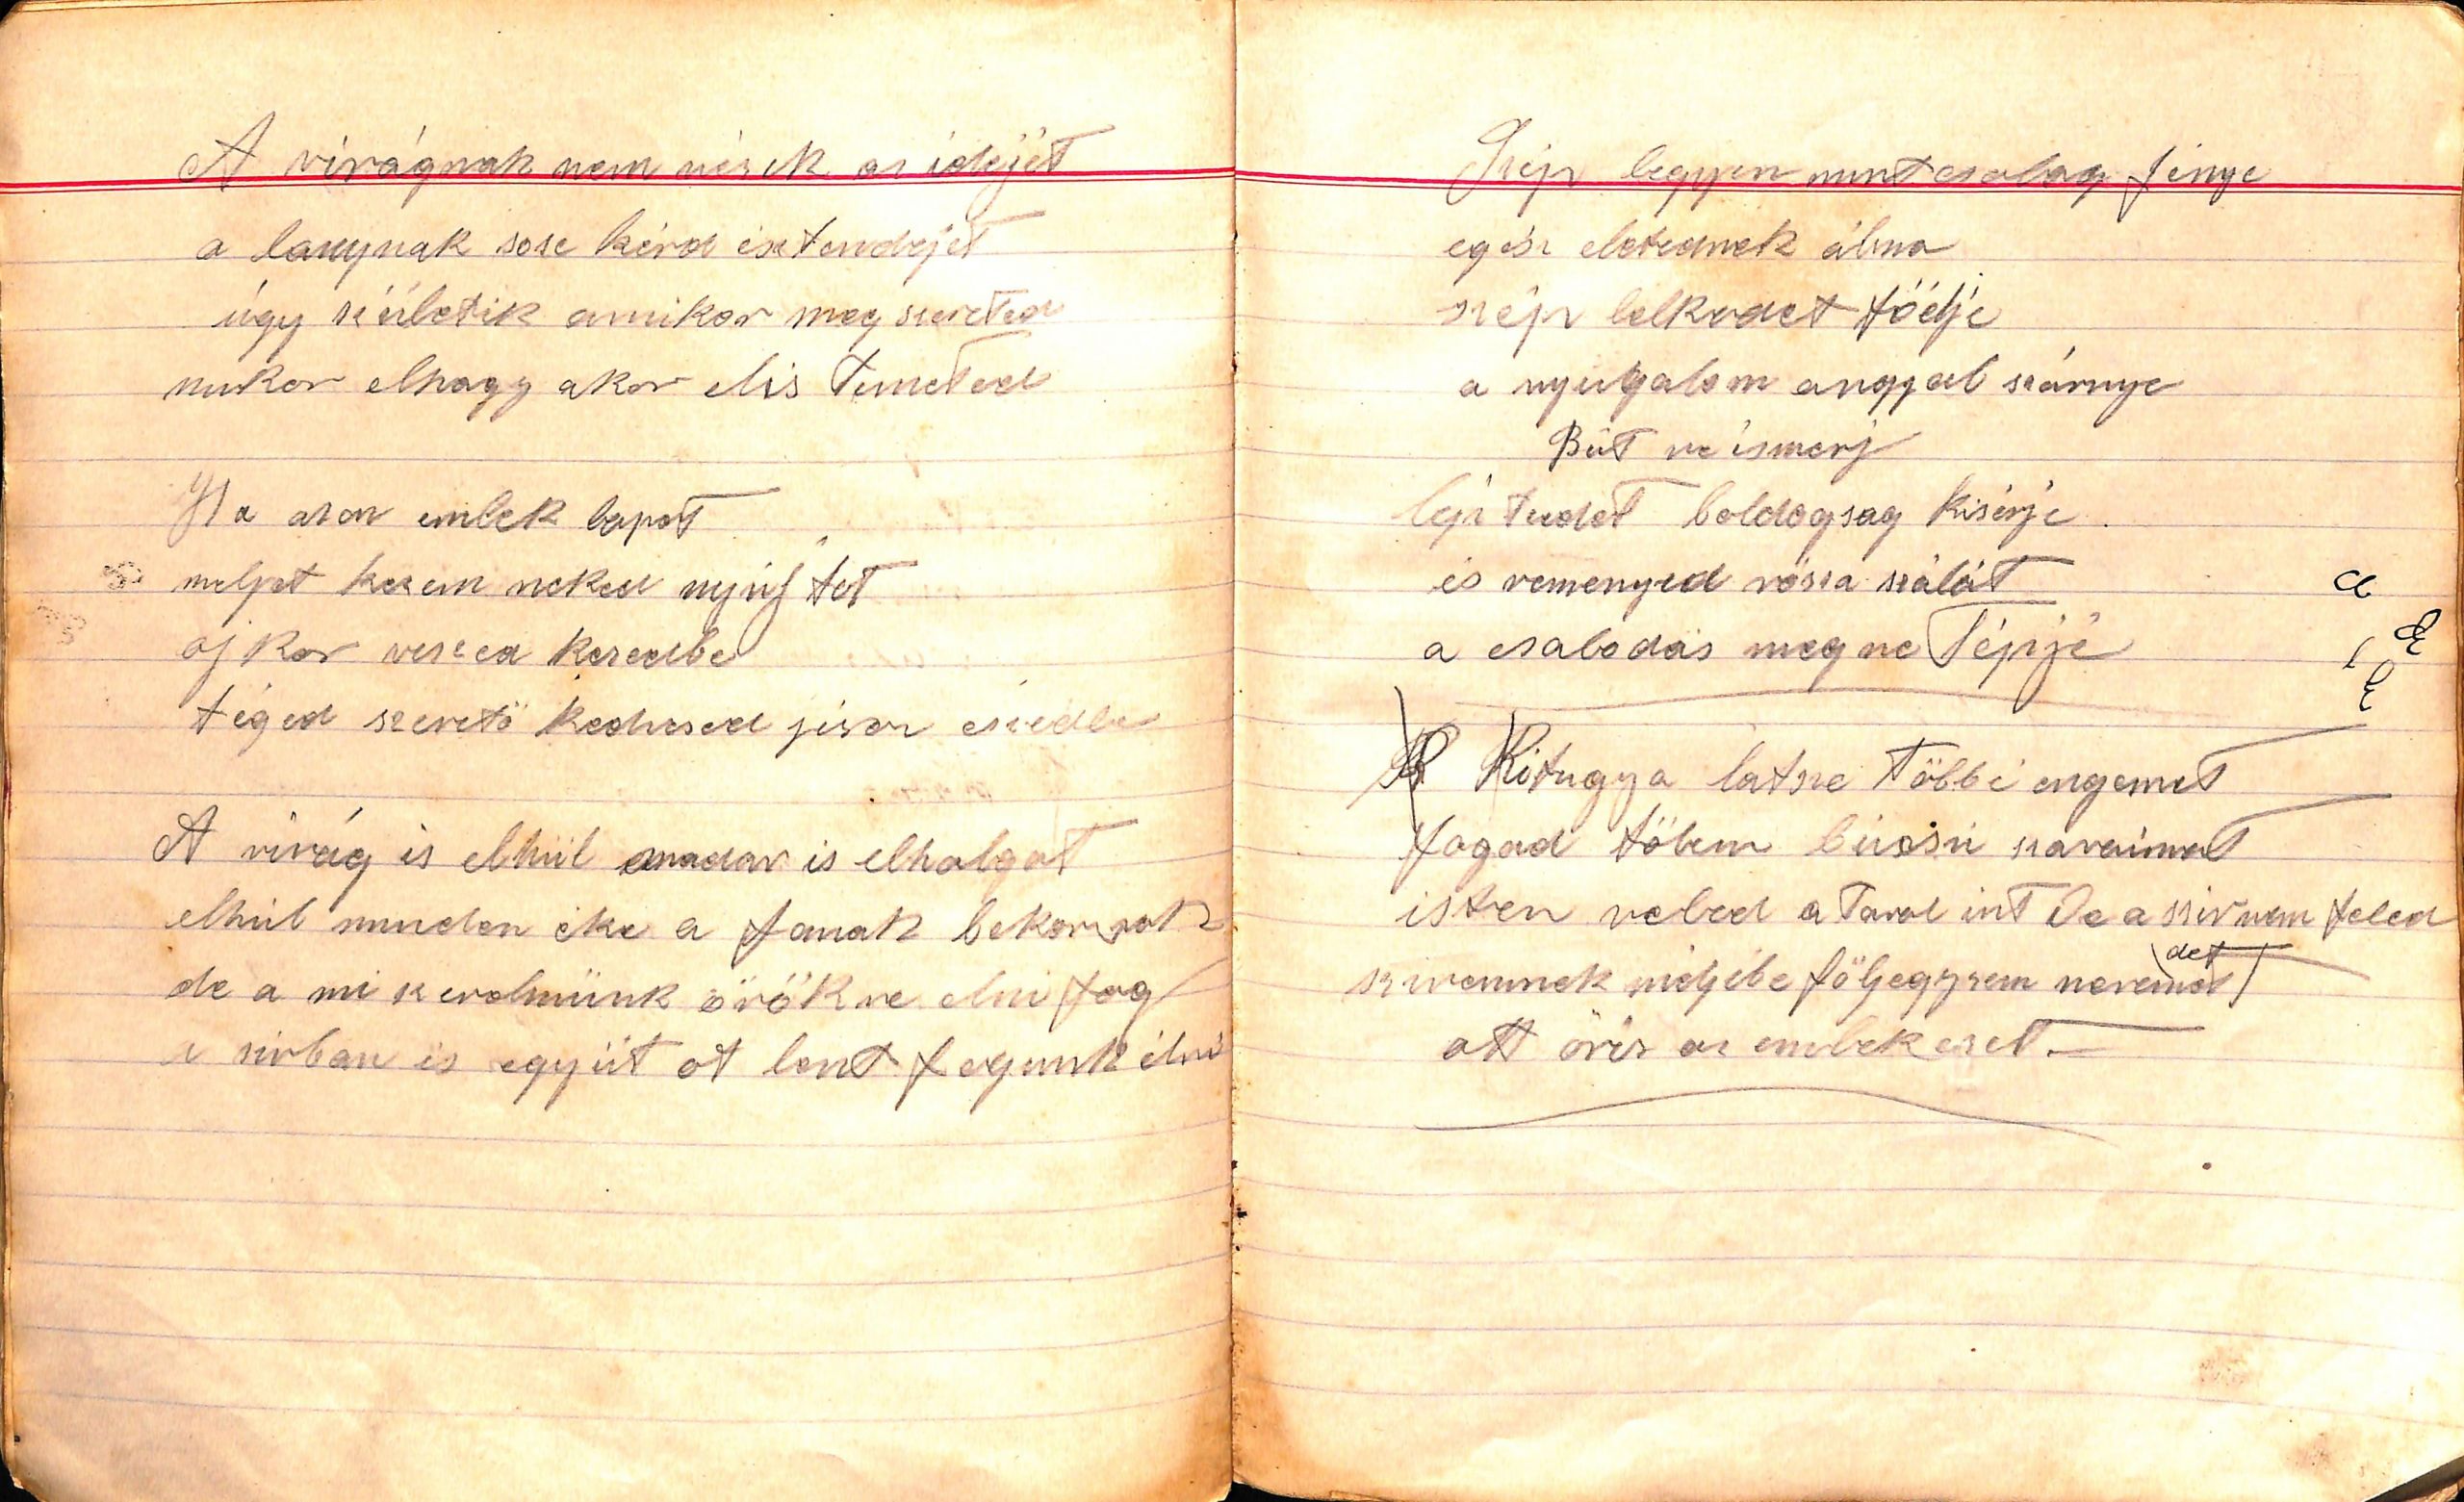 A virágnak nem nézik az idejét
a lanynak sose kérd esztendejét
úgy születik amikor meg szereted
mikor elhagy akor elis temeted
Ha azon emlek lapot
melyet kezem neked nyújtot
ojkor veszed kezedbe
téged szerető kedvesed jison eszedbe
A virág is elhül amadar is elhalgat
elhül minden éke a fanak bekor
de a mi szerelmünk örökre elni fog
a sirban is együt ot lent fogunk élni
Szép legyen mint csalag fénye
egész eletednek álma
szép lelkedet födje
a nyugalom angyal szárnye
Bút ne ismerj
lépteedet boldogsag kisérje
és remenyed rózsa szálát
a csalodás meg ne Tépjé
Kitugya latsze többé engemet
fogad tölem búcsú szavaimat
isten veled a Tavol int De a sziv nem feled
szivemnek méljébe följegyzem nevemet
det
ott öriz az emlekezet.